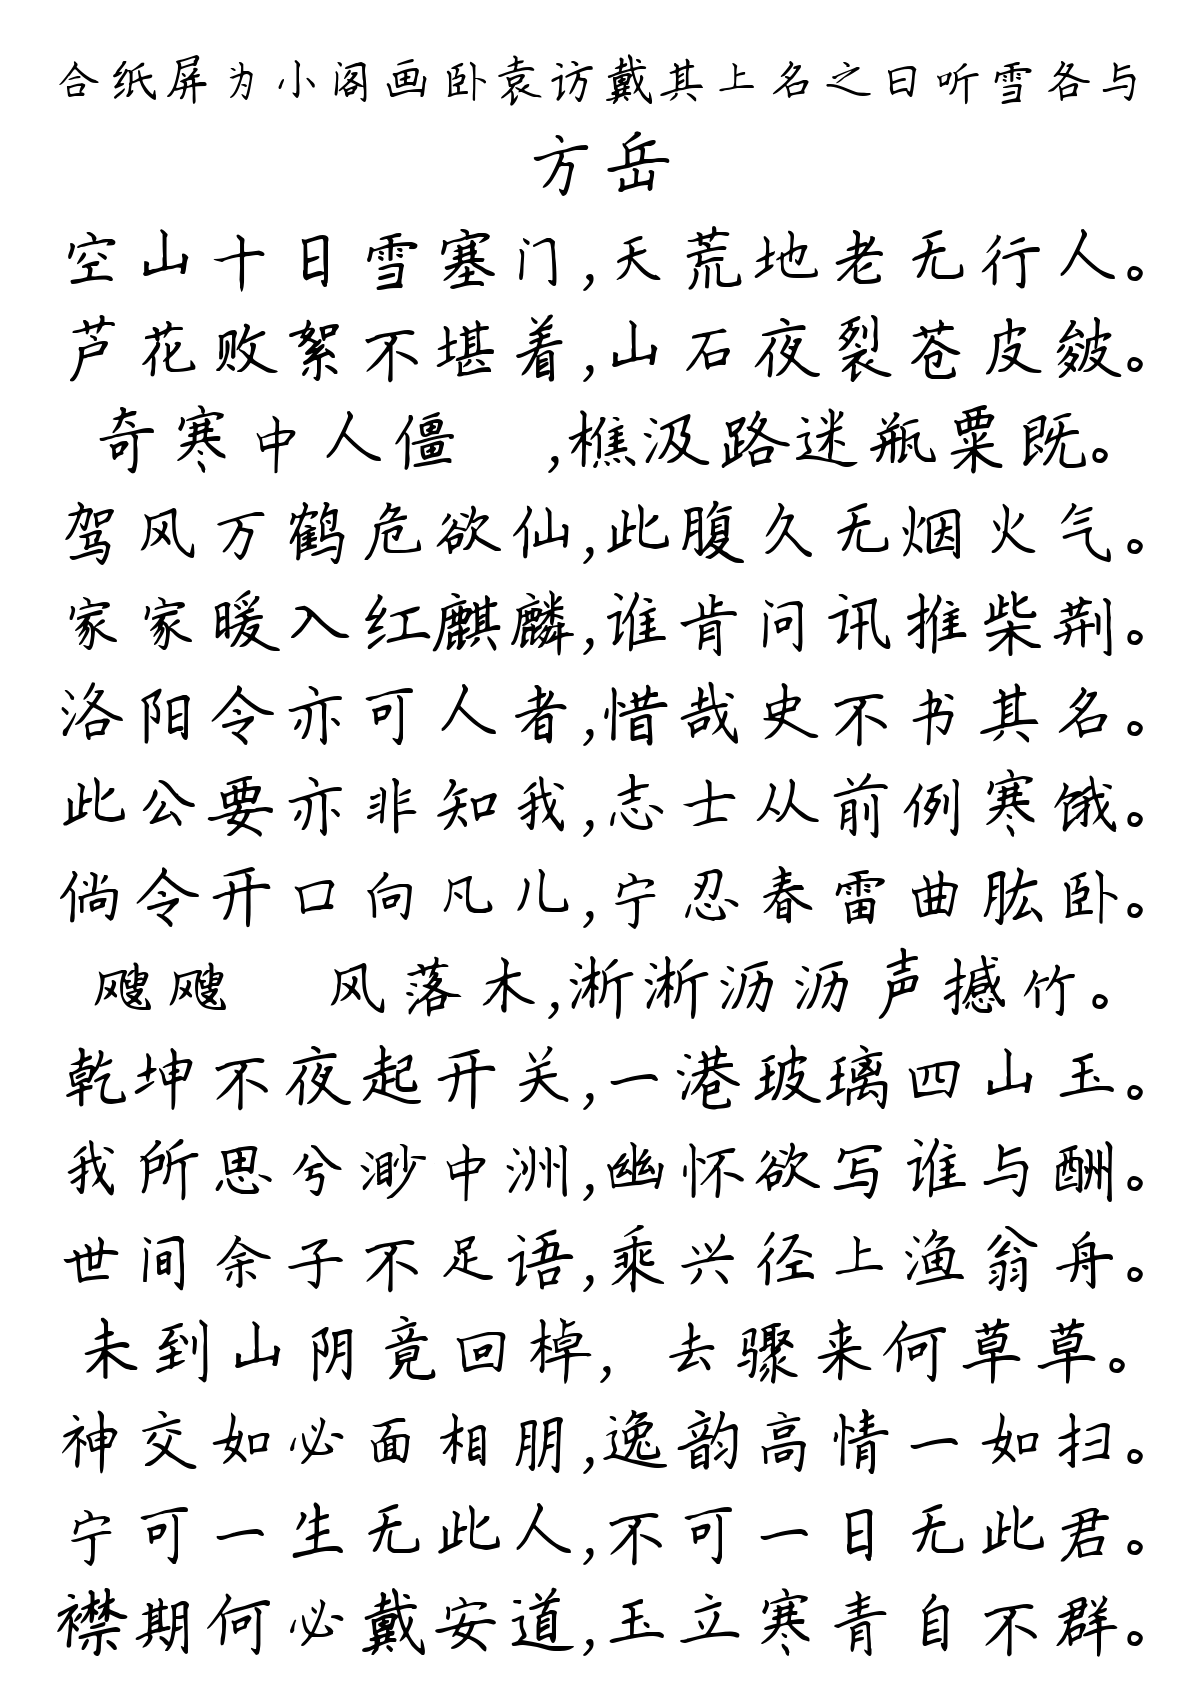 合纸屏为小阁画卧袁访戴其上名之曰听雪各与
方岳
空山十日雪塞门,天荒地老无行人。
芦花败絮不堪着,山石夜裂苍皮皴。
奇寒中人僵 ,樵汲路迷瓶粟既。
驾风万鹤危欲仙,此腹久无烟火气。
家家暖入红麒麟,谁肯问讯推柴荆。
洛阳令亦可人者,惜哉史不书其名。
此公要亦非知我,志士从前例寒饿。
倘令开口向凡儿,宁忍春雷曲肱卧。
飕飕 风落木,淅淅沥沥声撼竹。
乾坤不夜起开关,一港玻璃四山玉。
我所思兮渺中洲,幽怀欲写谁与酬。
世间余子不足语,乘兴径上渔翁舟。
未到山阴竟回棹,去骤来何草草。
神交如必面相朋,逸韵高情一如扫。
宁可一生无此人,不可一日无此君。
襟期何必戴安道,玉立寒青自不群。